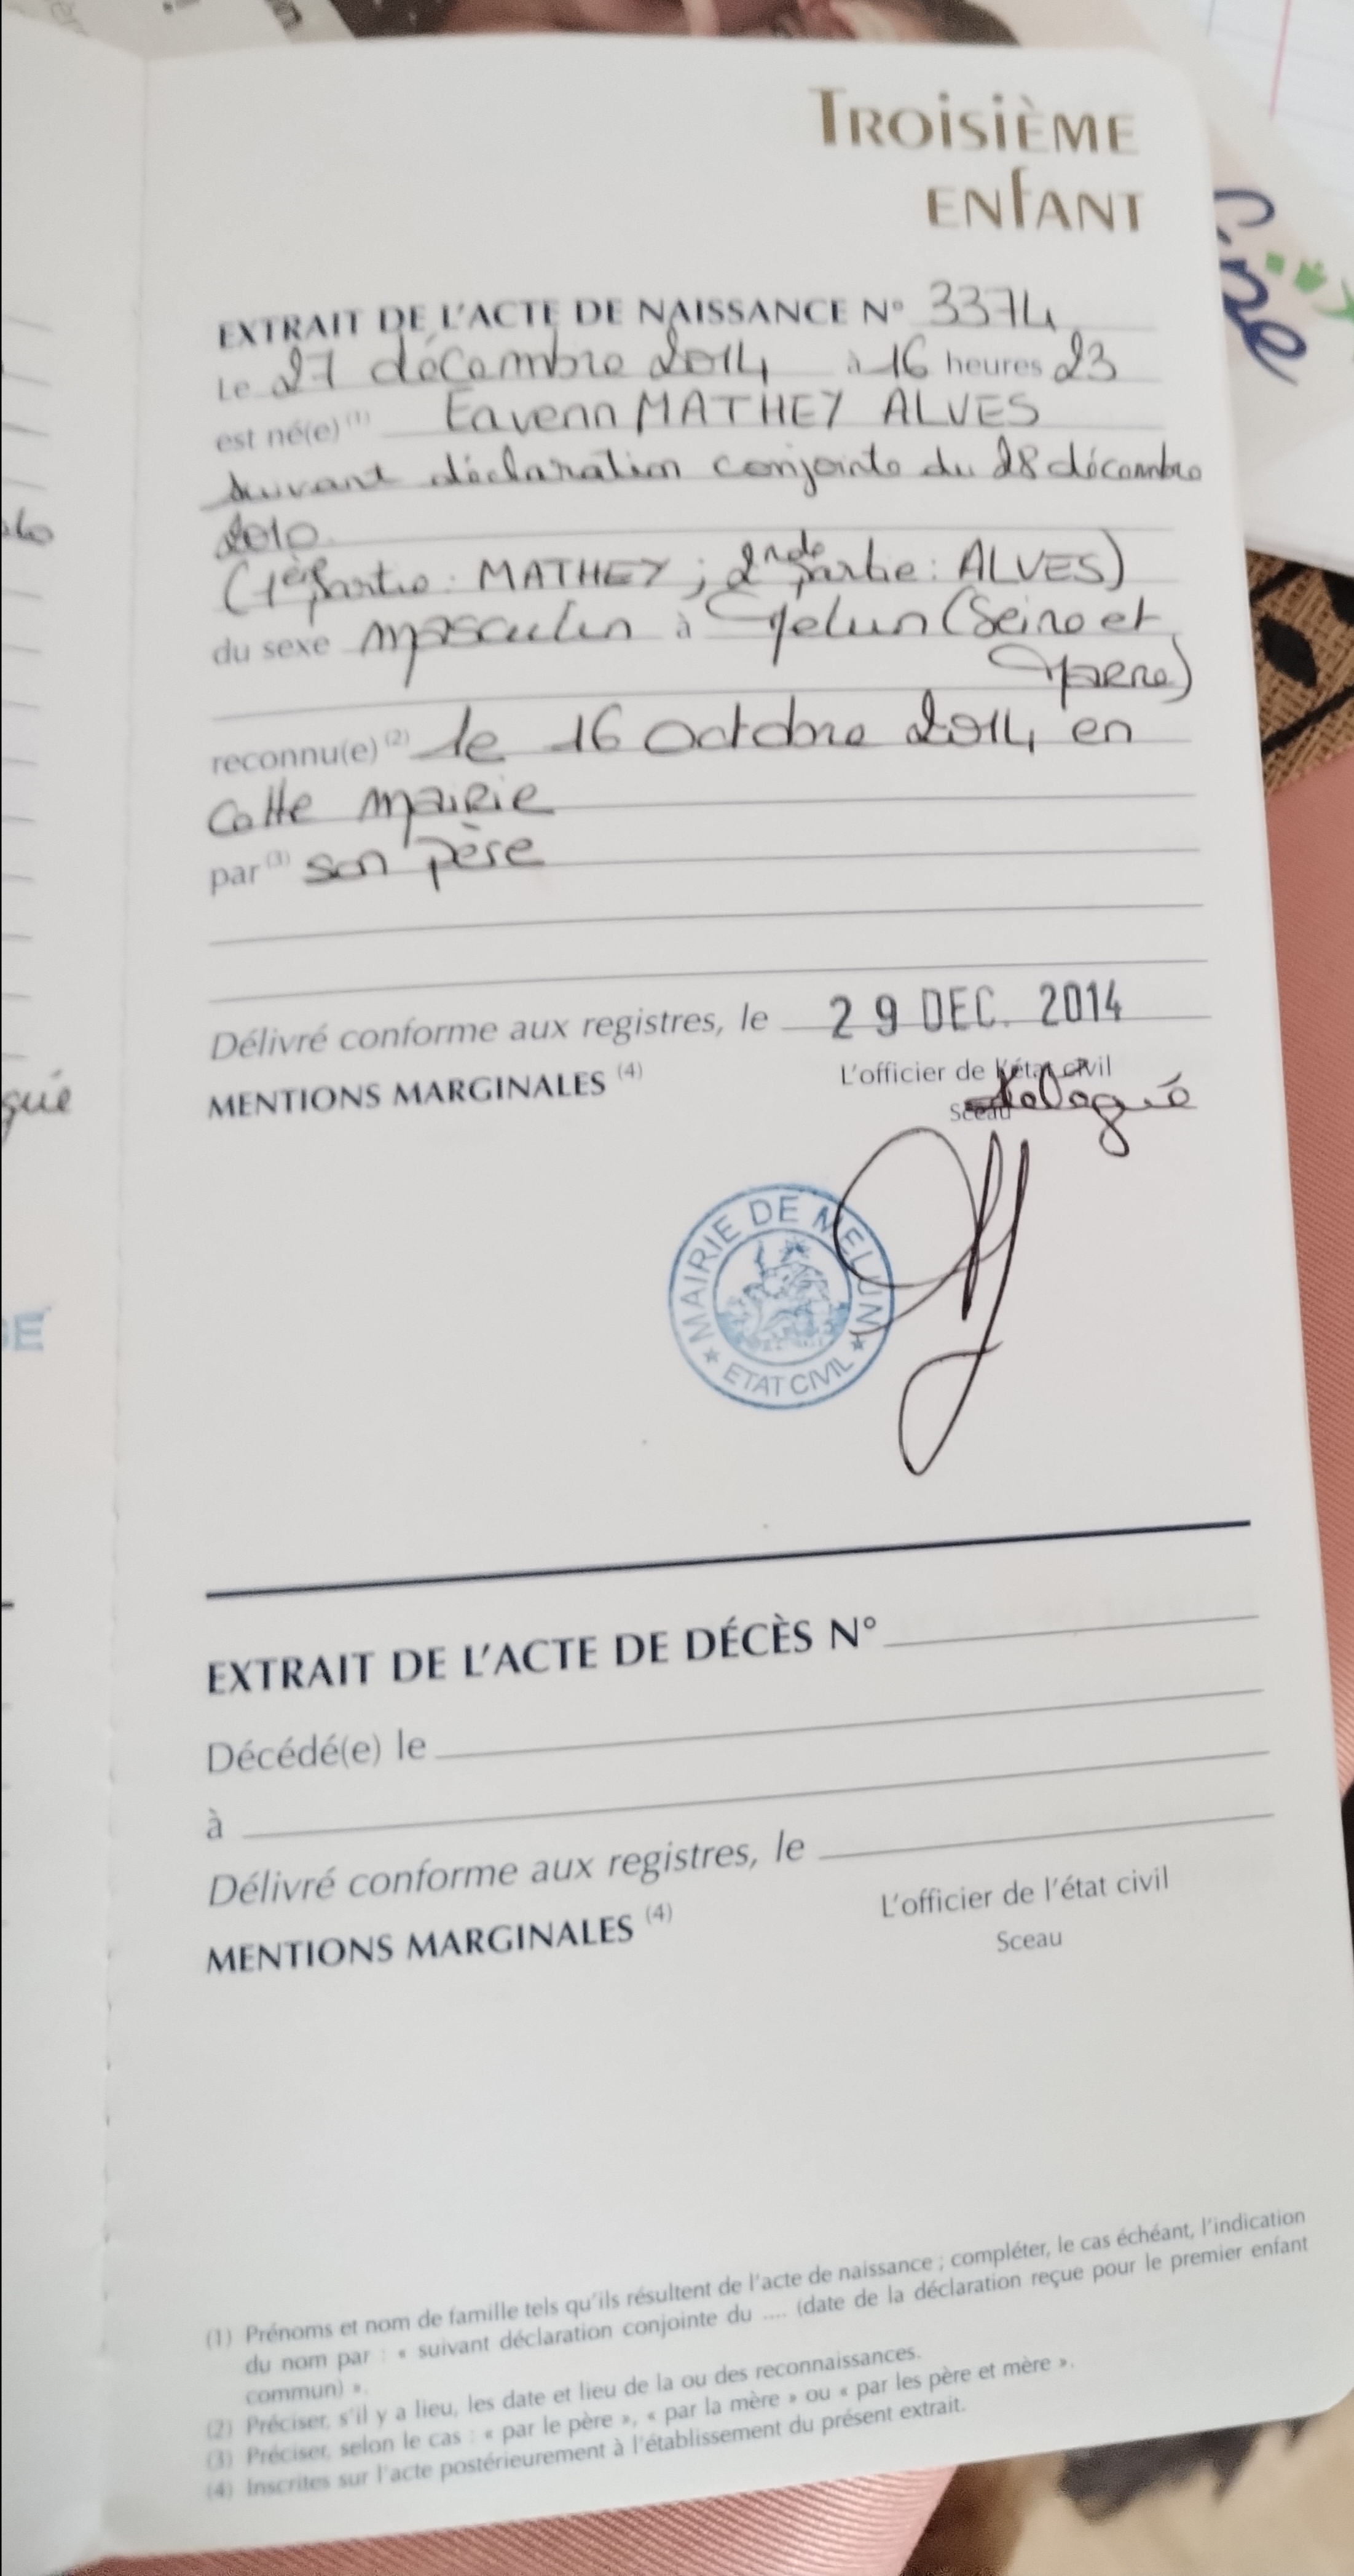 TROISIÈME
ENFANT
EXTRAIT DE L'ACTE DE NAISSANCE N° 3374
Le 27 décembre 2014 à 16 heures 23
est né(e) (1) Eavenn MATHEY ALVES
suivant déclaration conjointe du 28 décembre
2010
(1ère partie : MATHEY ; 2nde partie : ALVES)
du sexe masculin à Melun (Seine et
Marne)
reconnu(e) (2) le 16 octobre 2014 en
cette mairie
par (3) son père
Délivré conforme aux registres, le 29 DEC. 2014
MENTIONS MARGINALES (4)
L'officier de l'état civil
Sceau délégué
MAIRIE DE MELUN
ETAT CIVIL
EXTRAIT DE L'ACTE DE DÉCÈS N°
Décédé(e) le
à
Délivré conforme aux registres, le
MENTIONS MARGINALES (4)
L'officier de l'état civil
Sceau
(1) Prénoms et nom de famille tels qu'ils résultent de l'acte de naissance ; compléter, le cas échéant, l'indication
du nom par : « suivant déclaration conjointe du .... (date de la déclaration reçue pour le premier enfant
commun) ».
(2) Préciser, s'il y a lieu, les date et lieu de la ou des reconnaissances.
(3) Préciser, selon le cas : « par le père », « par la mère » ou « par les père et mère ».
(4) Inscrites sur l'acte postérieurement à l'établissement du présent extrait.